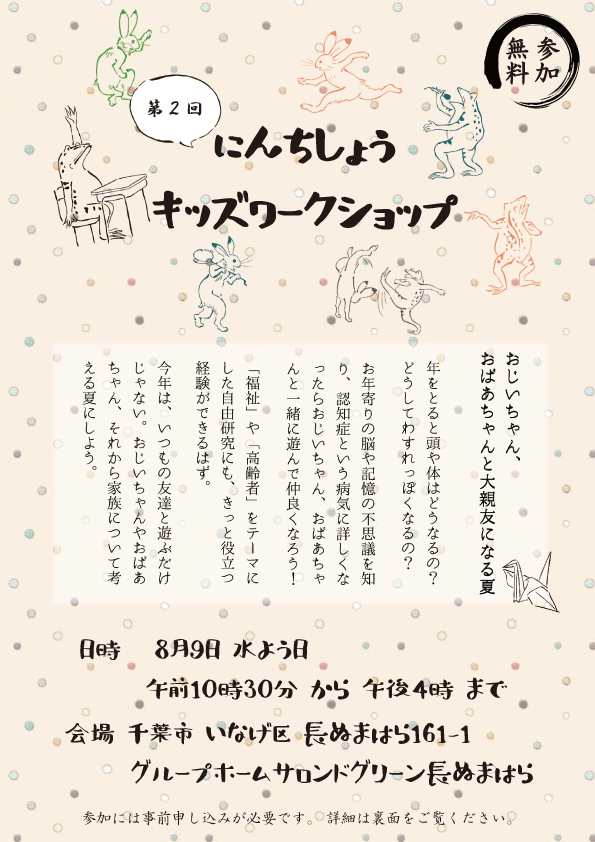 参加
無料
第2回
にんちしょう
キッズワークショップ
おじいちゃん、
おばあちゃんと大親友になる夏
年をとると頭や体はどうなるの?
どうしてわすれっぽくなるの?
お年寄りの脳や記憶の不思議を知
り、認知症という病気に詳しくな
ったらおじいちゃん、おばあちゃ
んと一緒に遊んで仲良くなろう!
「福祉」や「高齢者」をテーマに
した自由研究にも、きっと役立つ
経験ができるはず。
今年は、いつもの友達と遊ぶだけ
じゃない。おじいちゃんやおばあ
ちゃん、それから家族について考
える夏にしよう。
日時 8月9日 水よう日
午前10時30分 から 午後4時 まで
会場 千葉市 いなげ区 長ぬまはら161-1
グループホームサロンドグリーン長ぬまはら
参加には事前申し込みが必要です。 詳細は裏面をご覧ください。